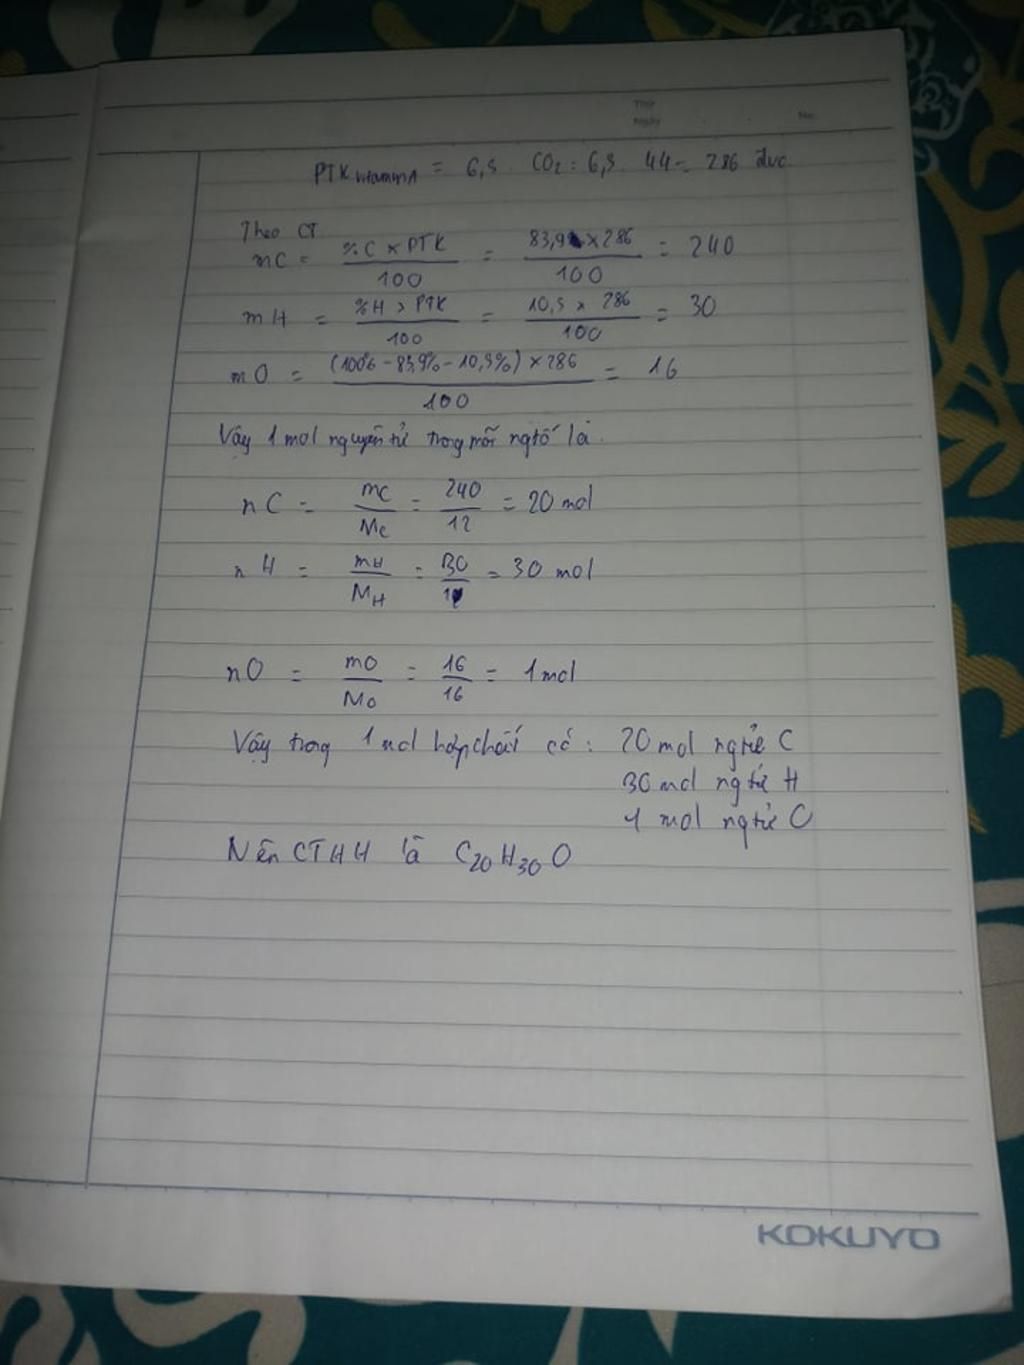 Thứ
Ngày
No.
PTK vitaminA = 6,5 . CO2 = 6,5 . 44 = 286 đvc
Theo CT
mC = %C x PTK / 100 = 83,9 x 286 / 100 = 240
mH = %H x PTK / 100 = 10,5 x 286 / 100 = 30
mO = (100% - 83,9% - 10,5%) x 286 / 100 = 16
Vậy 1 mol nguyên tử trong mỗi ngtố là.
nC = mC / MC = 240 / 12 = 20 mol
nH = mH / MH = 30 / 1 = 30 mol
nO = mO / MO = 16 / 16 = 1 mol
Vậy trong 1 mol hợp chất có : 20 mol ngtử C
30 mol ngtử H
1 mol ngtử O
Nên CTHH là C20H30O
KOKUYO